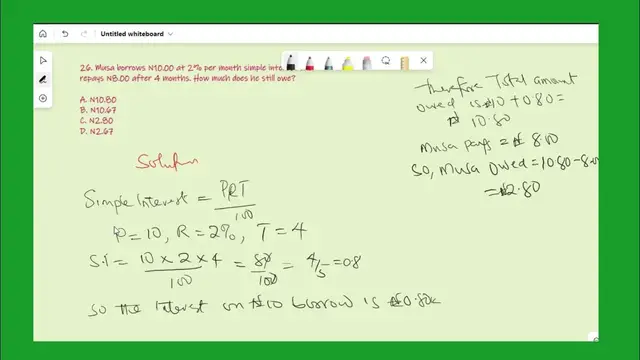 Untitled whiteboard
26. Musa borrows ₦10.00 at 2% per month simple inte
repays ₦8.00 after 4 months. How much does he still owe?
A. ₦10.80
B. ₦10.67
C. ₦2.80
D. ₦2.67
Solution
Simple Interest = PRT
100
P = 10, R = 2%, T = 4
S.I = 10 × 2 × 4 = 80 = 4/5 = 0.8
100 100
So the Interest on ₦10 borrow is ₦0.80k
Therefore Total amount
owed is ₦10 + 0.80 =
₦ 10.80
Musa pays = ₦ 8.00
So, Musa owed = 10.80 - 8.00
= ₦2.80